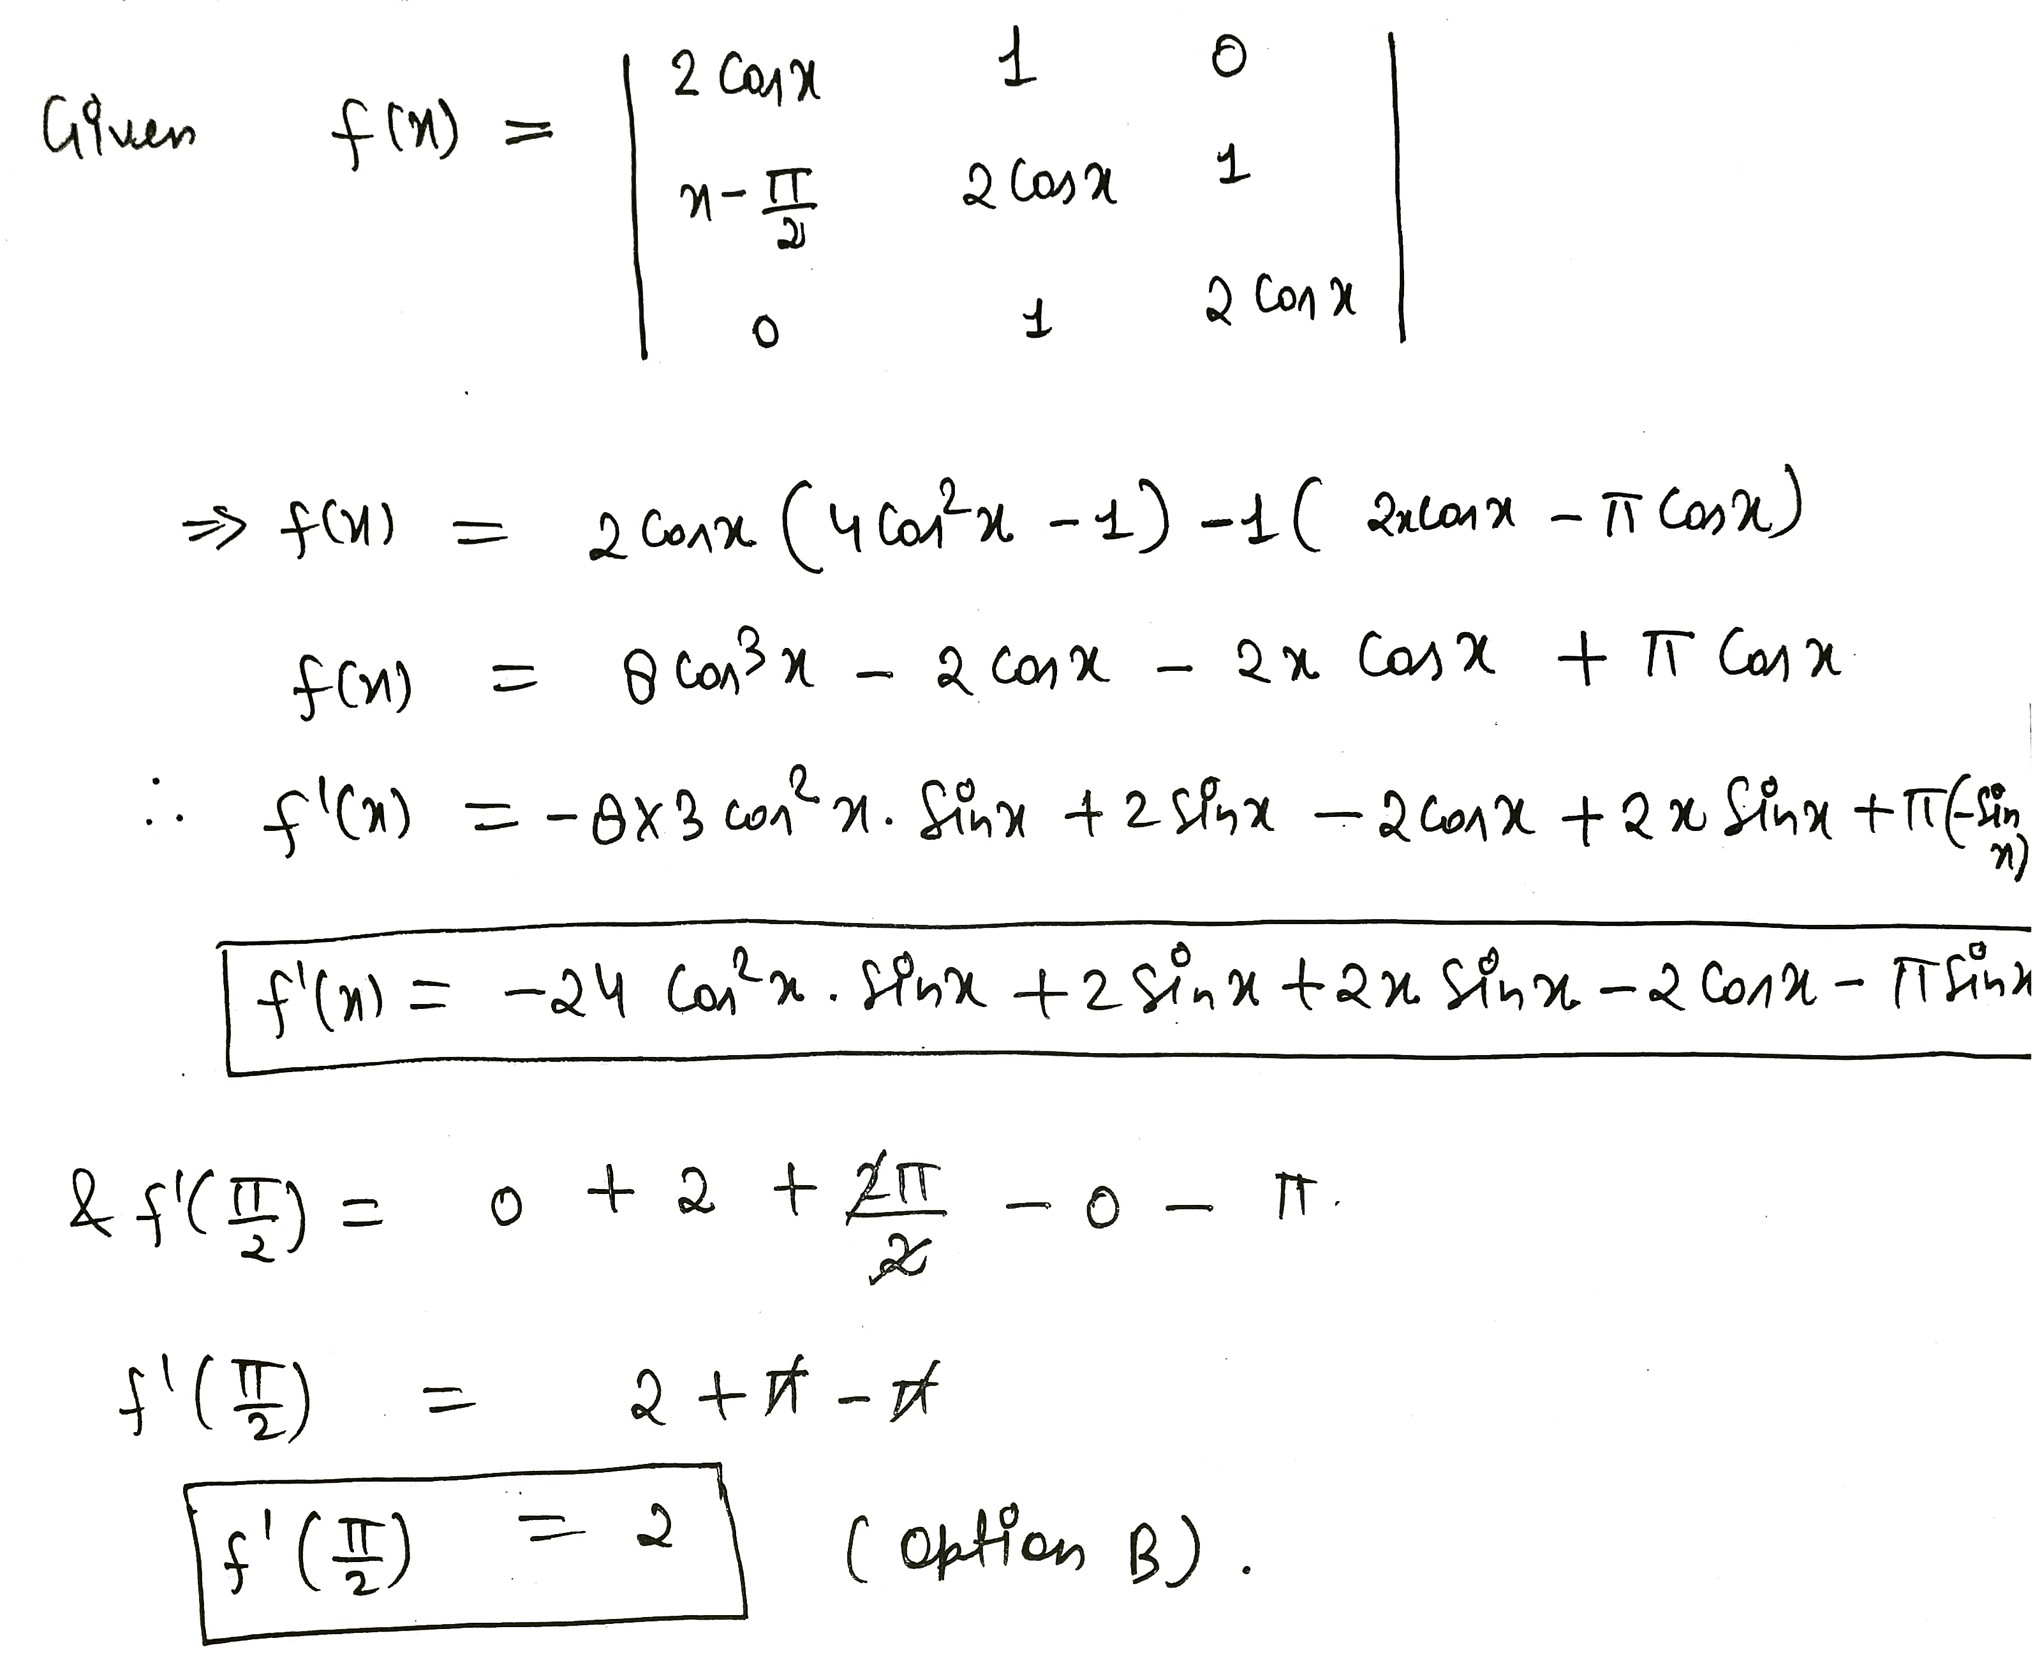 Given f(x) = | 2 Cos x 1 0 |
| x - π/2 2 Cos x 1 |
| 0 1 2 Cos x |
⇒ f(x) = 2 Cos x (4 Cos²x - 1) - 1 ( 2x Cos x - π Cos x)
f(x) = 8 Cos³x - 2 Cos x - 2x Cos x + π Cos x
∴ f'(x) = - 8×3 cos²x. Sin x + 2 Sin x - 2 Cos x + 2x Sin x + π(-Sin x)
f'(x) = -24 Cos²x. Sin x + 2 Sin x + 2x Sin x - 2 Cos x - π Sin x
& f'(π/2) = 0 + 2 + 2π/2 - 0 - π.
f'(π/2) = 2 + π - π
f'(π/2) = 2 (Option B).